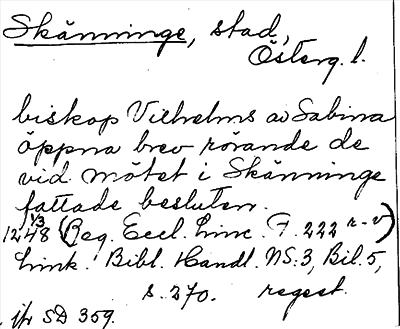 Skänninge, stad,
Österg. l.
biskop Vilhelms av Sabina
öppna brev rörande de
vid mötet i Skänninge
fattade besluten.
1248 1/3 (Reg. Eccl. Linc. F. 222 r-v)
Link. Bibl. Handl. NS:3, Bil. 5,
s. 270. regest.
jfr SD 359.